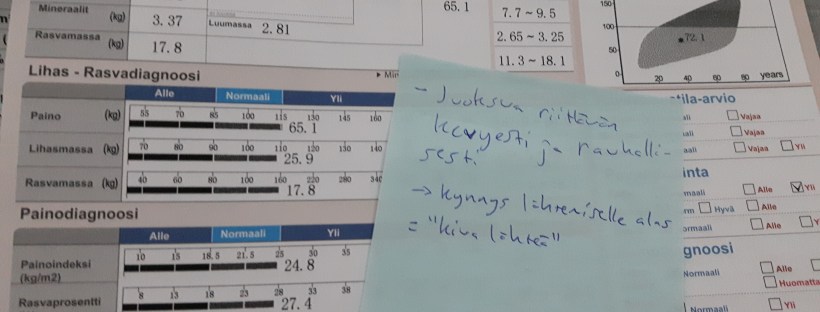 Mineraalit (kg) 3.37
Luumassa 2.81
65.1
7.7 ~ 9.5
Rasvamassa (kg) 17.8
2.65 ~ 3.25
11.3 ~ 18.1
150
100
50
0
72.1
20 40 60 80 years
Lihas - Rasvadiagnoosi
Alle Normaali Yli
Paino (kg) 55 70 85 100 115 130 145 160
65.1
Lihasmassa (kg) 70 80 90 100 110 120 130 140
25.9
Rasvamassa (kg) 40 60 80 100 160 220 280 340
17.8
Painodiagnoosi
Alle Normaali Yli
Painoindeksi (kg/m2) 10 15 18.5 21.5 25 30 35
24.8
Rasvaprosentti 8 13 18 23 28 33 38
27.4
- Juoksua riittävän
kevyesti ja rauhalli-
sesti
→ kynnys lähtemiselle alas
= "kiva lähteä"
tila-arvio
Vajaa
Vajaa
Vajaa Yli
inta
Alle Yli
Hyvä Alle
Alle
gnoosi
Normaali Alle
Huomatta
Normaali Yli